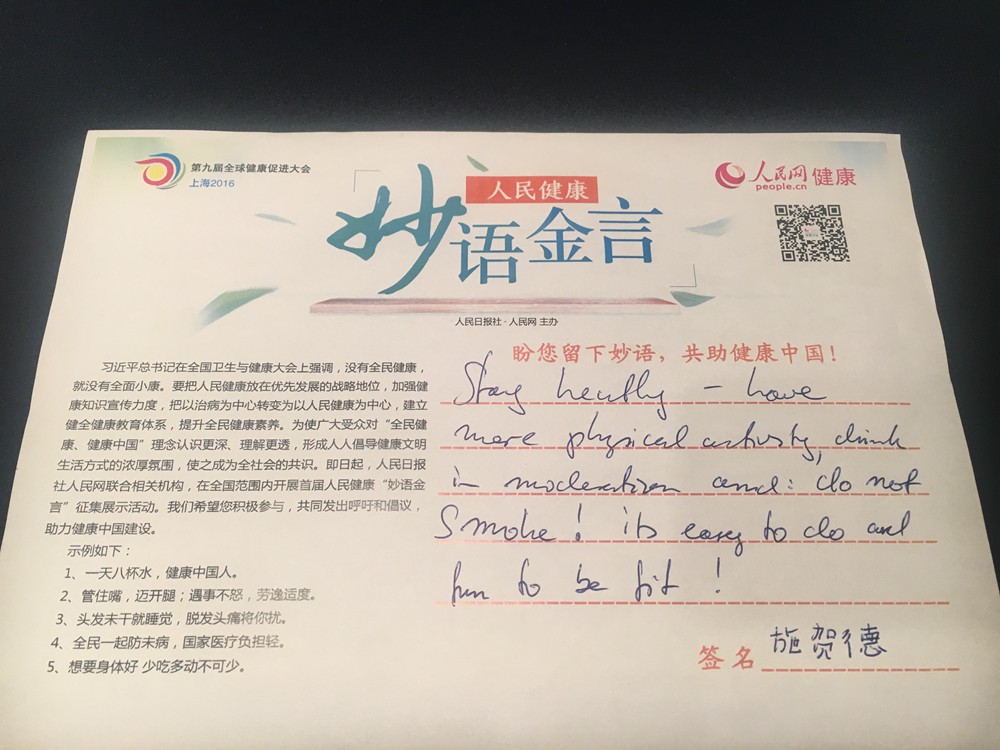 第九届全球健康促进大会
上海2016
人民健康
妙语金言
人民网 健康
people.cn
人民日报社·人民网 主办
习近平总书记在全国卫生与健康大会上强调，没有全民健康，
就没有全面小康。要把人民健康放在优先发展的战略地位，加强健
康知识宣传力度，把以治病为中心转变为以人民健康为中心，建立
健全健康教育体系，提升全民健康素养。为使广大受众对“全民健
康、健康中国”理念认识更深、理解更透，形成人人倡导健康文明
生活方式的浓厚氛围，使之成为全社会的共识。即日起，人民日报
社人民网联合相关机构，在全国范围内开展首届人民健康“妙语金
言”征集展示活动。我们希望您积极参与，共同发出呼吁和倡议，
助力健康中国建设。
示例如下：
1、一天八杯水，健康中国人。
2、管住嘴，迈开腿；遇事不怒，劳逸适度。
3、头发未干就睡觉，脱发头痛将你扰。
4、全民一起防未病，国家医疗负担轻。
5、想要身体好 少吃多动不可少。
盼您留下妙语，共助健康中国！
Stay healthy – have
more physical activity, drink
in moderation and: do not
smoke! its easy to do and
fun to be fit !
签名 施贺德